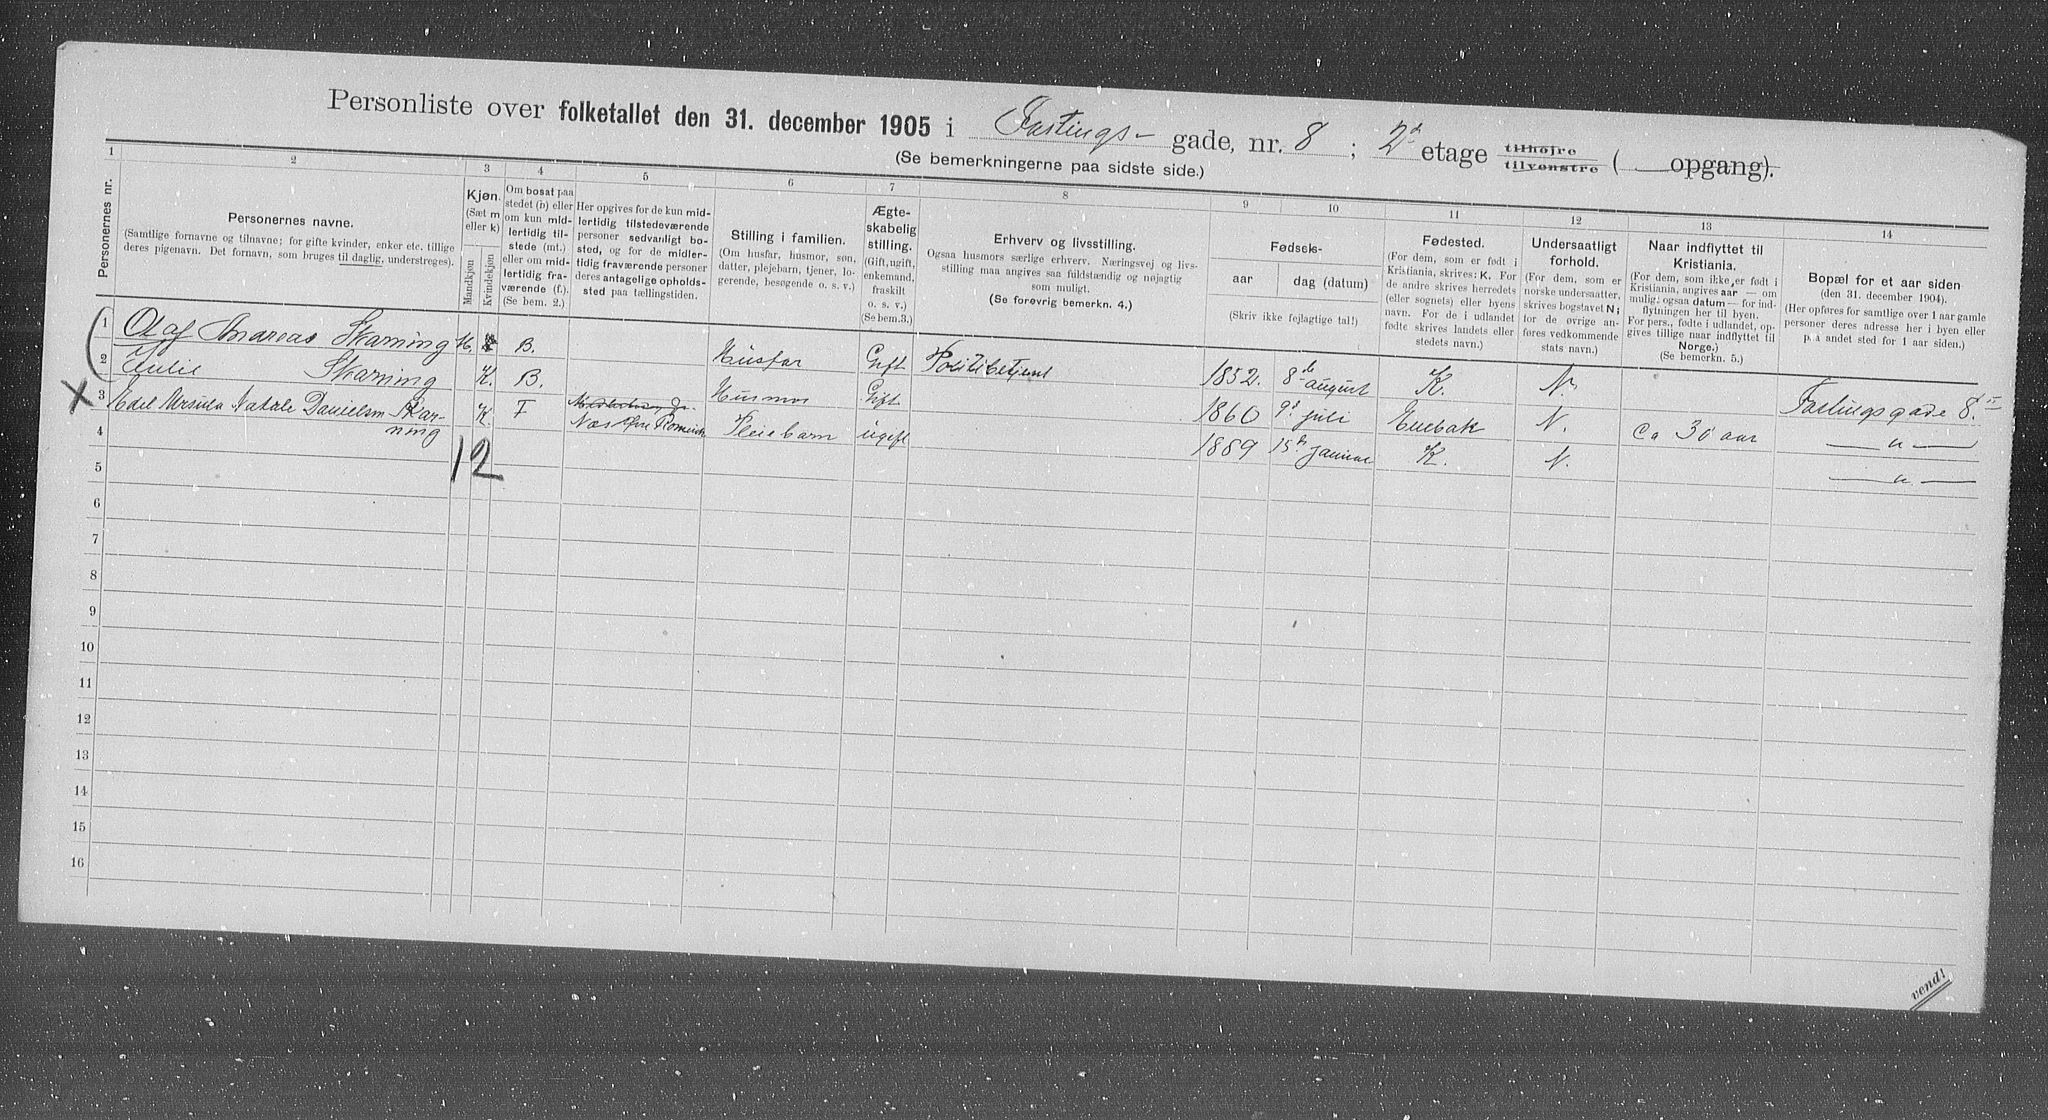 Personliste over folketallet den 31. december 1905 i Fastings- gade, nr. 8 ; 2d etage tilhøjre tilvenstre ( opgang).
(Se bemerkningerne paa sidste side.)
1 2 3 4 5 6 7 8 9 10 11 12 13 14
Personernes nr.
Personernes navne.
(Samtlige fornavne og tilnavne; for gifte kvinder, enker etc. tillige
deres pigenavn. Det fornavn, som bruges til daglig, understreges).
Kjøn.
(Sæt m
eller k)
Mandkjøn
Kvindekjøn
Om bosat paa
stedet (b) eller
om kun mid-
lertidig til-
stede (mt.)
eller om mid-
lertidig fra-
værende (f.).
(Se bem. 2.)
Her opgives for de kun mid-
lertidig tilstedeværende
personer sedvanligt bo-
sted, og for de midler-
tidig fraværende personer
deres antagelige opholds-
sted paa tællingstiden.
Stilling i familien.
(Om husfar, husmor, søn,
datter, plejebarn, tjener, lo-
gerende, besøgende o. s. v.)
Ægte-
skabelig
stilling.
(Gift, ugift,
enkemand,
fraskilt
o. s. v.)
(Se bem.3.)
Erhverv og livsstilling.
Ogsaa husmors særlige erhverv. Næringsvej og livs-
stilling maa angives saa fuldstændig og nøjagtig
som muligt.
(Se forøvrig bemerkn. 4.)
Fødsels-
aar dag (datum)
(Skriv ikke fejlagtige tal!)
Fødested.
(For dem, som er født i
Kristiania, skrives: K. For
de andre skrives herredets
(eller sognets) eller byens
navn. For de i udlandet
fødte skrives landets eller
stedets navn.)
Undersaatligt
forhold.
(For dem, som er
norske undersaatter,
skrives bogstavet N;
for de øvrige an-
føres vedkommende
stats navn.)
Naar indflyttet til
Kristiania.
(For dem, som ikke er født i
Kristiania, angives aar — om
mulig ogsaa datum — for ind-
flytningen her til byen.
For pers., fødte i udlandet, op-
gives tillige naar indflyttet til
Norge.)
(Se bemerkn. 5.)
Bopæl for et aar siden
(den 31. december 1904).
(Her opføres for samtlige over 1 aar gamle
personer deres adresse her i byen eller
paa andet sted for 1 aar siden.)
1 Olaf Andreas Skarning M. B. Husfar Gift Politibetjent 1852. 8de august K. N. Fastingsgade 8. II
2 Julie Skarning K. B. Husmor Gift 1860 9d juli Enebak N. Ca 30 aar — " —
X 3 Edel Ursula Natale Danielsen Skar-
ning K. F Pleiebarn ugift 1889 15de januar K. N. — " —
12
4
5
6
7
8
9
10
11
12
13
14
15
16
vend!